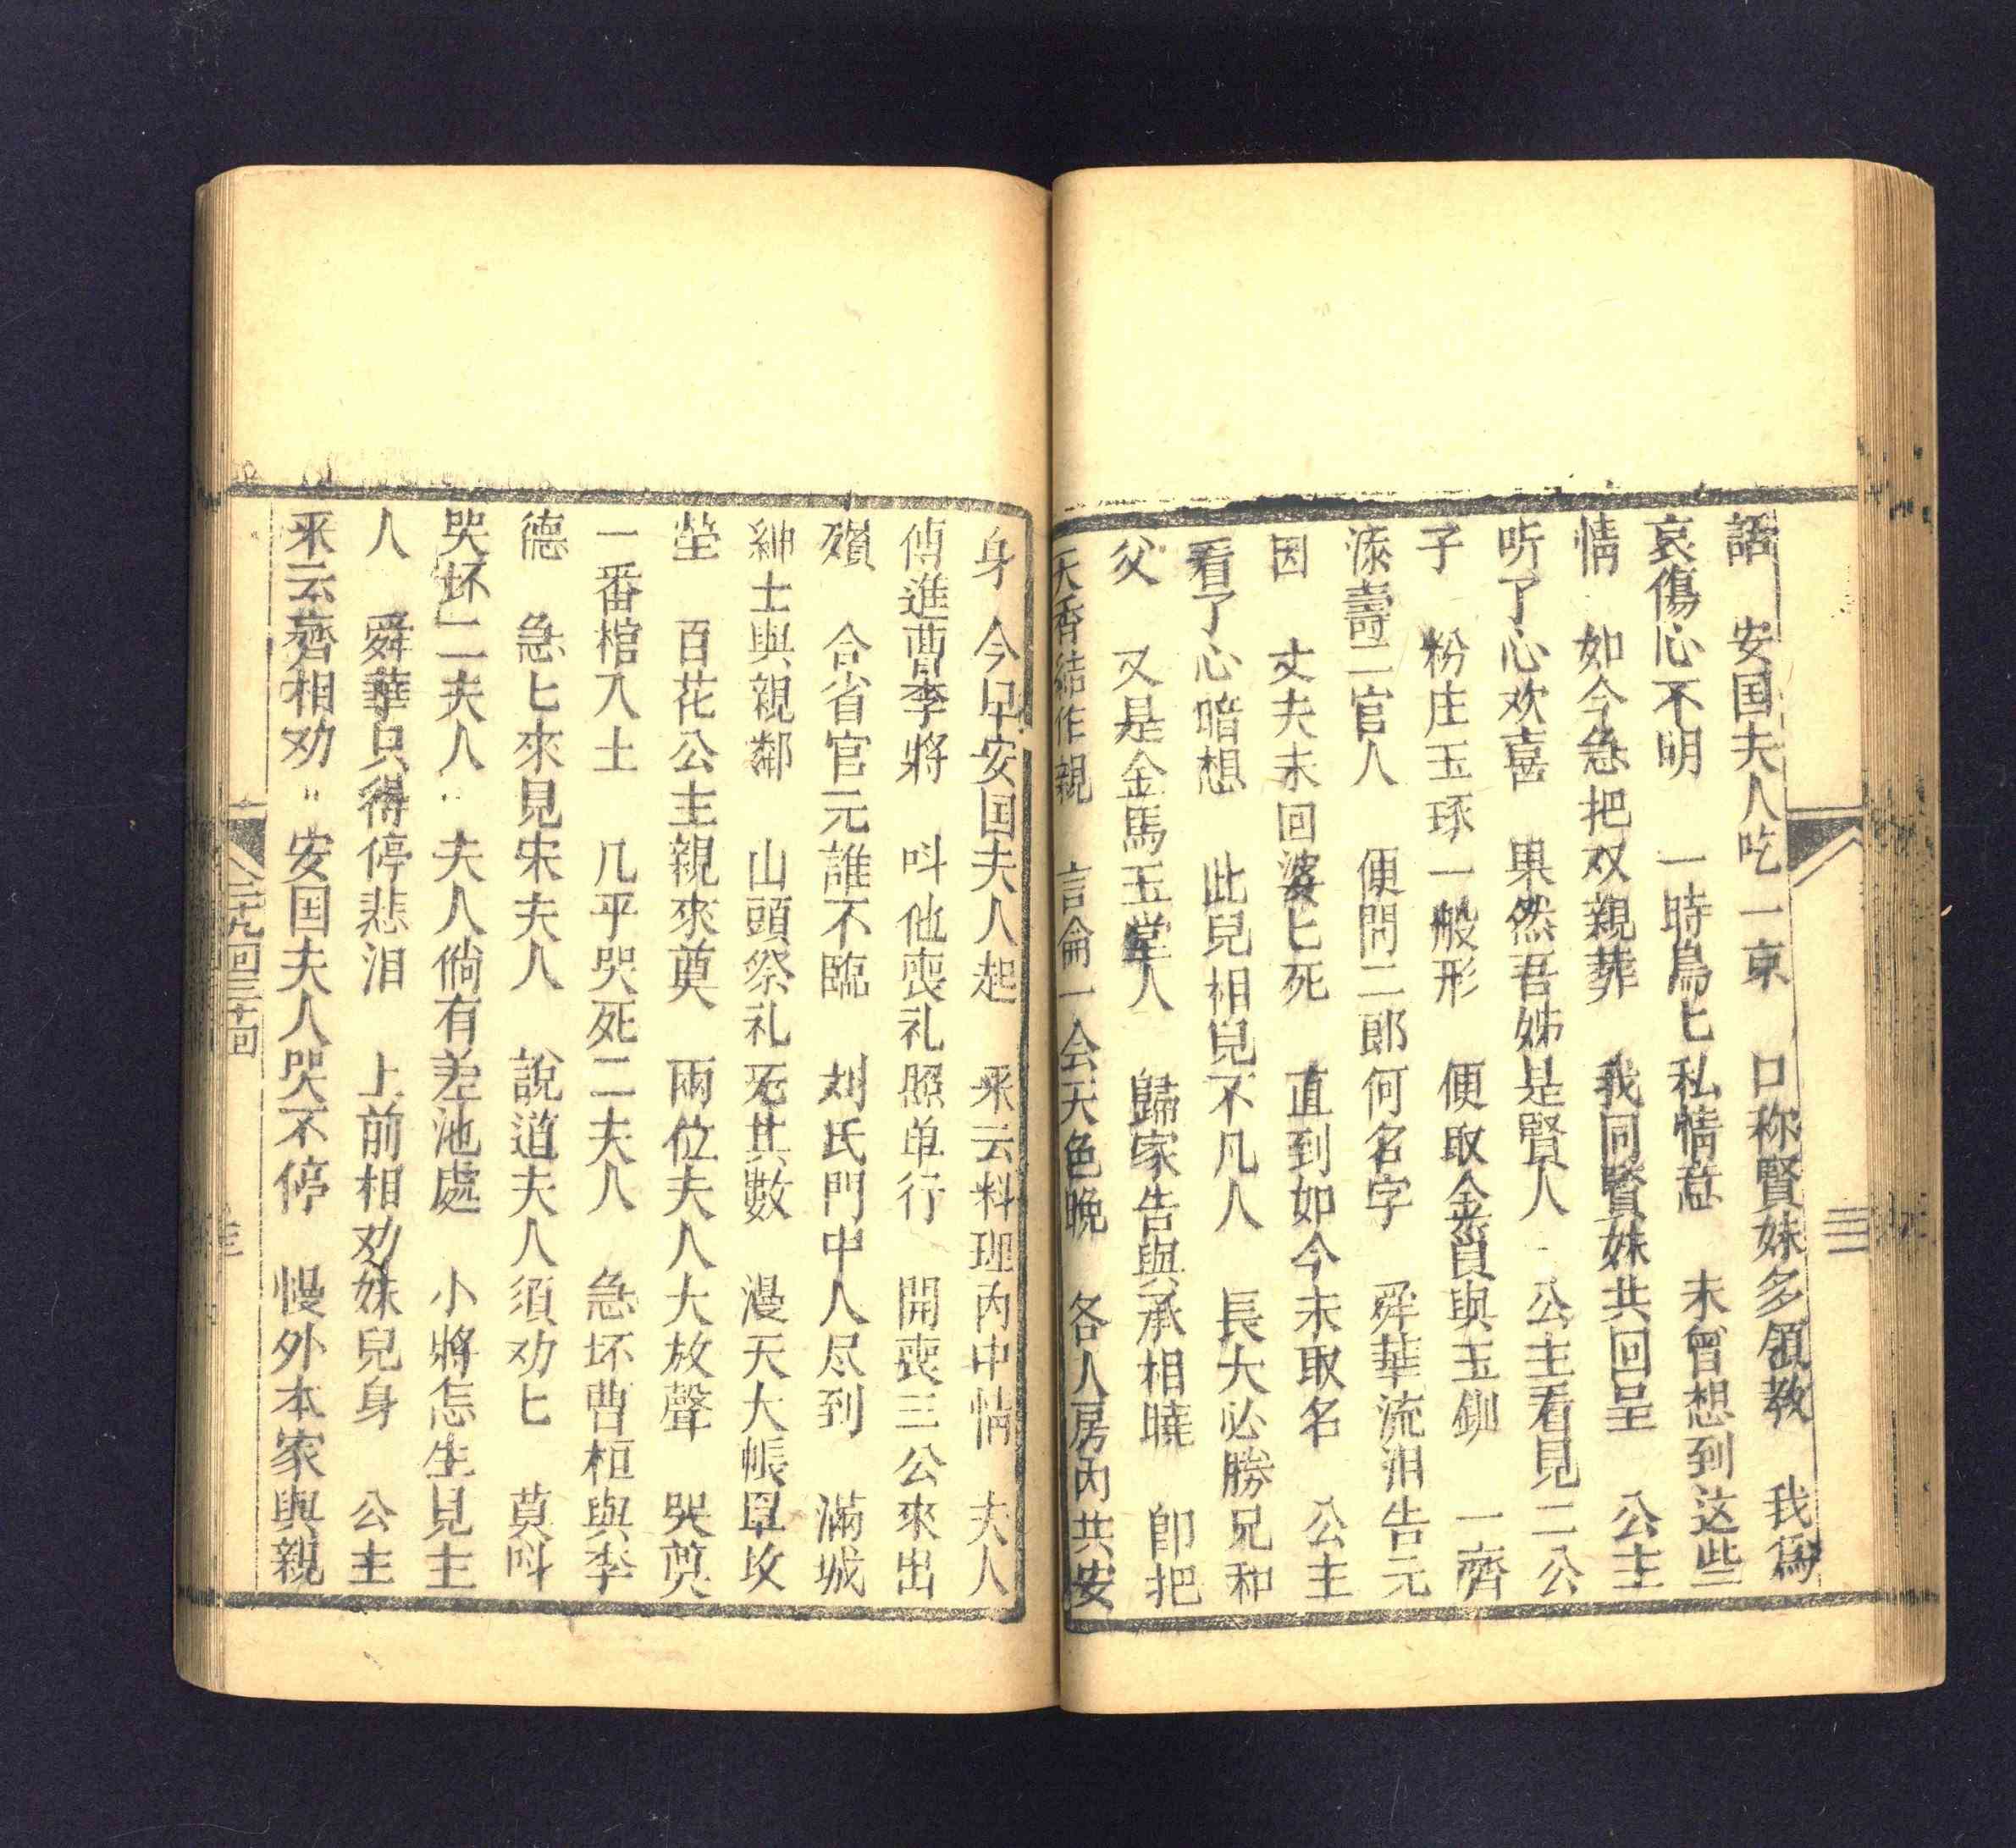 話　安国夫人吃一京　口称賢妹多領教　我爲
哀傷心不明　一時鳥匕私情意　未曾想到这些
情　如今急把双親葬　我同賢妹共回呈　公主
听了心欢喜　果然吾姊是賢人　公主看見二公
子　粉庄玉琢一般形　便取金員與玉釧　一齊
添壽二官人　便問二郎何名字　舜華流泪告元
因　丈夫未回婆匕死　直到如今未取名　公主
看了心暗想　此兒相皃不凡人　長大必勝兄和
父　又是金馬玉堂人　歸家告與承相曉　卽把
天香結作親　言侖一会天色晚　各人房内共安
身　今早安国夫人起　来云料理内中情　夫人
傳進曹李將　呌他喪礼照单行　開喪三公來出
殯　合省官元誰不臨　刘氏門中人尽到　滿城
紳士與親鄰　山頭祭礼无其數　漫天大帳罩坟
塋　百花公主親來奠　兩位夫人大放聲　哭奠
一番棺入土　几乎哭死二夫人　急坏曹桓與李
德　急匕來見宋夫人　說道夫人須劝匕　莫呌
哭坏二夫人　夫人倘有差池處　小將怎生見主
人　舜華只得停悲泪　上前相劝妹兒身　公主
来云齊相劝　安国夫人哭不停　慢外本家與親
二十九回三十回